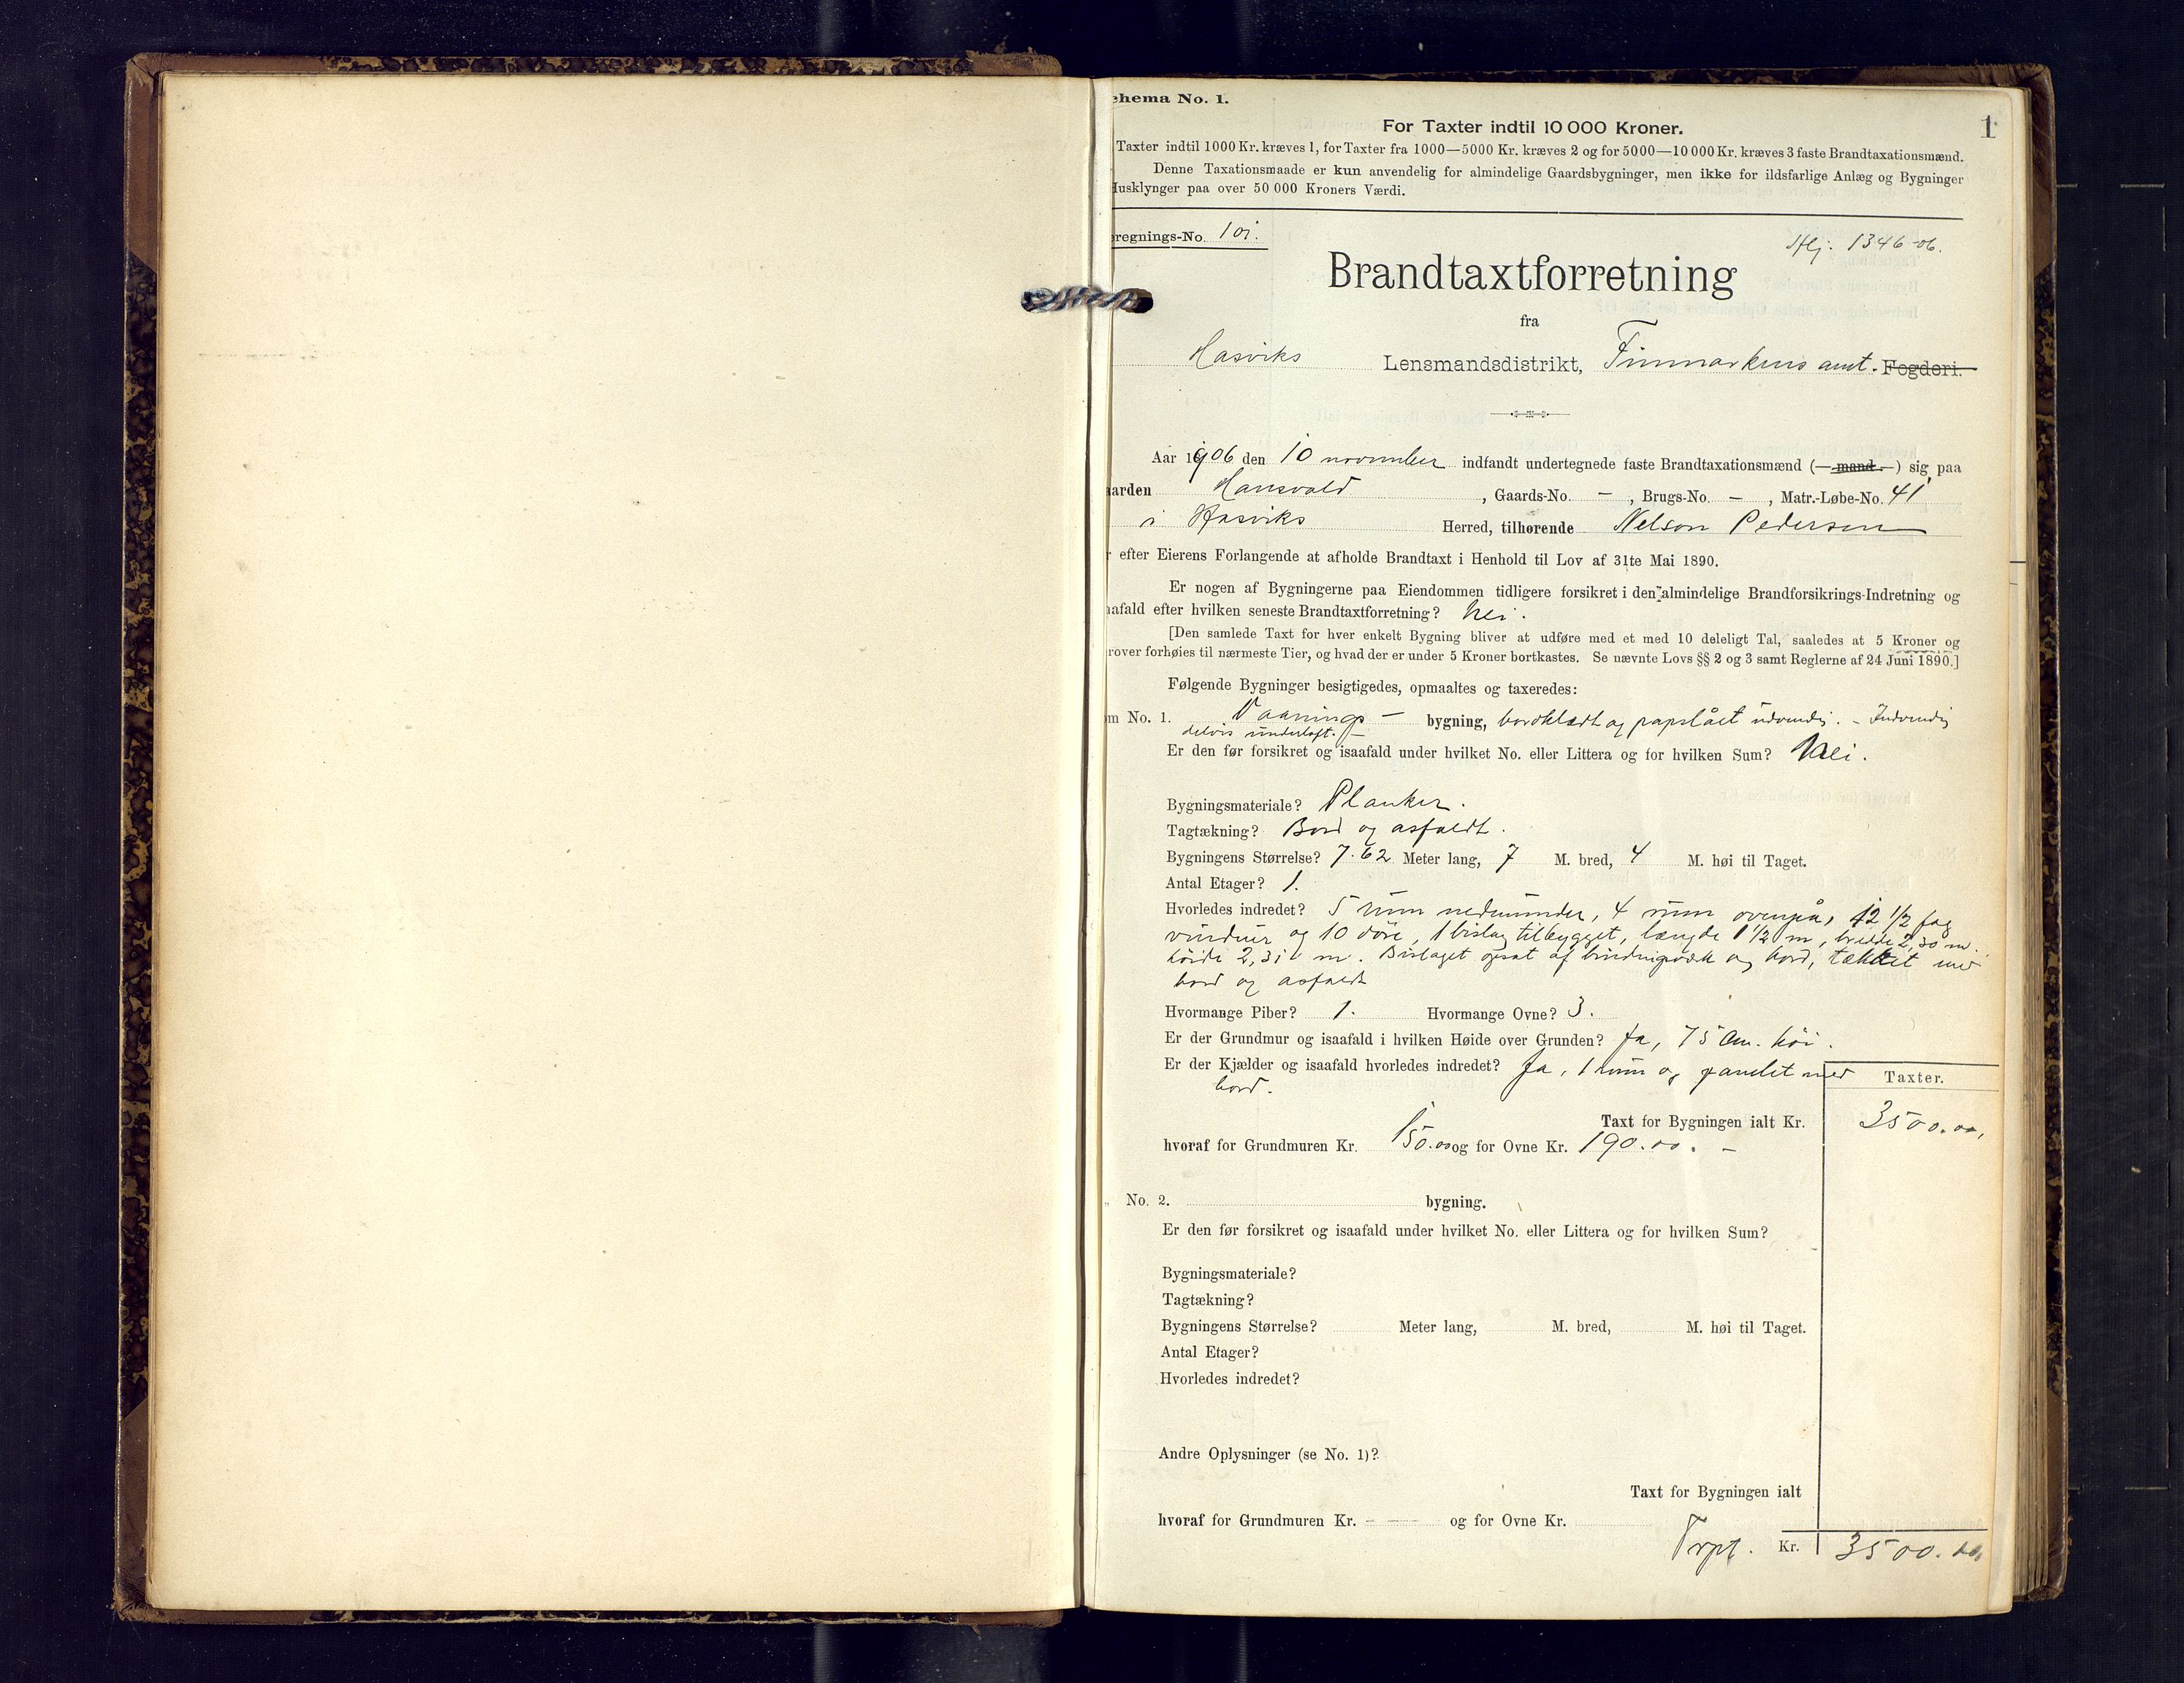 chema No. 1.
1
For Taxter indtil 10 000 Kroner.
Taxter indtil 1000 Kr. kræves 1, for Taxter fra 1000—5000 Kr. kræves 2 og for 5000—10 000 Kr. kræves 3 faste Brandtaxationsmænd.
Denne Taxationsmaade er kun anvendelig for almindelige Gaardsbygninger, men ikke for ildsfarlige Anlæg og Bygninger
Husklynger paa over 50 000 Kroners Værdi.
regnings-No. 101.
1346-06.
Brandtaxtforretning
fra
Hasviks Lensmandsdistrikt, Finmarkens amt. Fogderi.
Aar 1906 den 10 november indfandt undertegnede faste Brandtaxationsmænd (— mand —) sig paa
aarden Hansvold, Gaards-No. —, Brugs-No. —, Matr.-Løbe-No. 41
i Hasviks Herred, tilhørende Nelson Pedersen
r efter Eierens Forlangende at afholde Brandtaxt i Henhold til Lov af 31te Mai 1890.
Er nogen af Bygningerne paa Eiendommen tidligere forsikret i den almindelige Brandforsikrings-Indretning og
aafald efter hvilken seneste Brandtaxtforretning? Nei.
[Den samlede Taxt for hver enkelt Bygning bliver at udføre med et med 10 deleligt Tal, saaledes at 5 Kroner og
rover forhøies til nærmeste Tier, og hvad der er under 5 Kroner bortkastes. Se nævnte Lovs §§ 2 og 3 samt Reglerne af 24 Juni 1890.]
Følgende Bygninger besigtigedes, opmaaltes og taxeredes:
m No. 1. Vaanings — bygning, bordklædt og papslået udvendig. - Indvendig
delvis underloft. —
Er den før forsikret og isaafald under hvilket No. eller Littera og for hvilken Sum? Nei.
Bygningsmateriale? Planker.
Tagtækning? Bord og asfaldt.
Bygningens Størrelse? 7.62 Meter lang, 7 M. bred, 4 M. høi til Taget.
Antal Etager? 1.
Hvorledes indredet? 5 rum nedenunder, 4 rum ovenpå, 12 1/2 fag
vinduer og 10 döre, 1 bislag tilbygget, længde 1 1/2 m, bredde 2,30 m.
höide 2,31 m. Bislaget opsat af bindingsværk og bord, tækket med
bord og asfaldt
Hvormange Piber? 1. Hvormange Ovne? 3.
Er der Grundmur og isaafald i hvilken Høide over Grunden? Ja, 75 cm. höi.
Er der Kjælder og isaafald hvorledes indredet? Ja, 1 rum og panelet med
bord.
Taxter.
Taxt for Bygningen ialt Kr. 3500.00,
hvoraf for Grundmuren Kr. 150.00 og for Ovne Kr. 190.00. —
„ No. 2. bygning.
Er den før forsikret og isaafald under hvilket No. eller Littera og for hvilken Sum?
Bygningsmateriale?
Tagtækning?
Bygningens Størrelse? Meter lang, M. bred, M. høi til Taget.
Antal Etager?
Hvorledes indredet?
Andre Oplysninger (se No. 1)?
Taxt for Bygningen ialt
hvoraf for Grundmuren Kr. - — og for Ovne Kr.
Trpt. Kr. 3500.00,